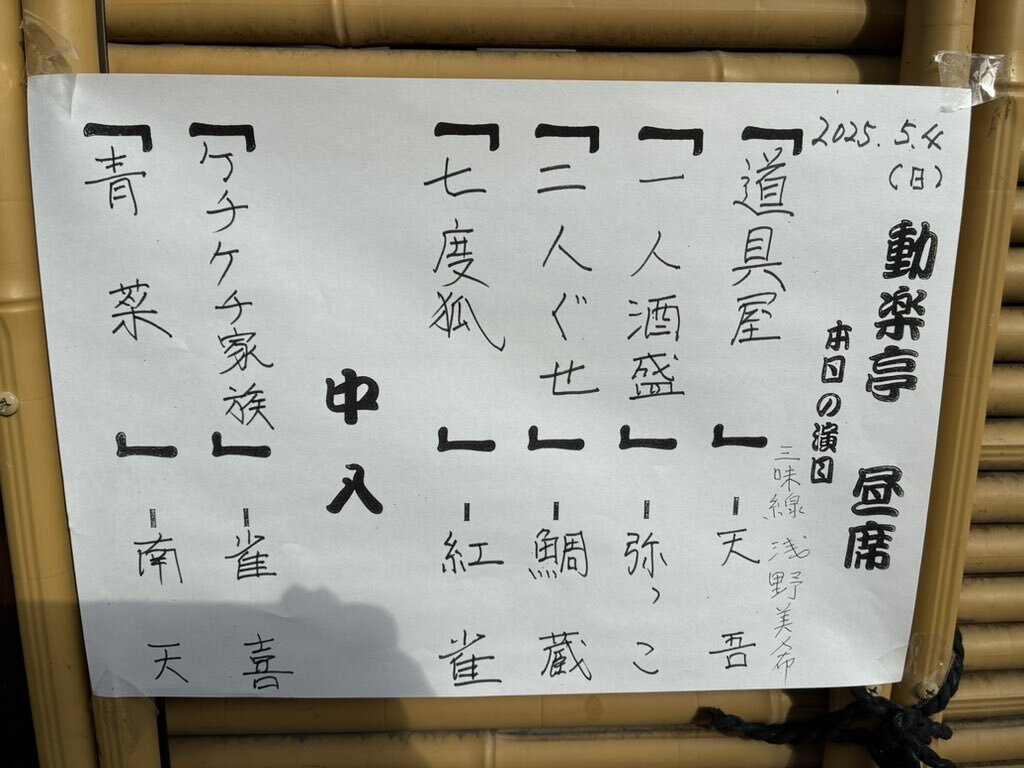 2025.5.4
(日)
動楽亭 昼席
本日の演目
三味線 浅野美希
「道具屋」-天吾
「一人酒盛」-弥っこ
「二人ぐせ」-鯛蔵
「七度狐」-紅雀
中入
「ケチケチ家族」-雀喜
「青菜」-南天